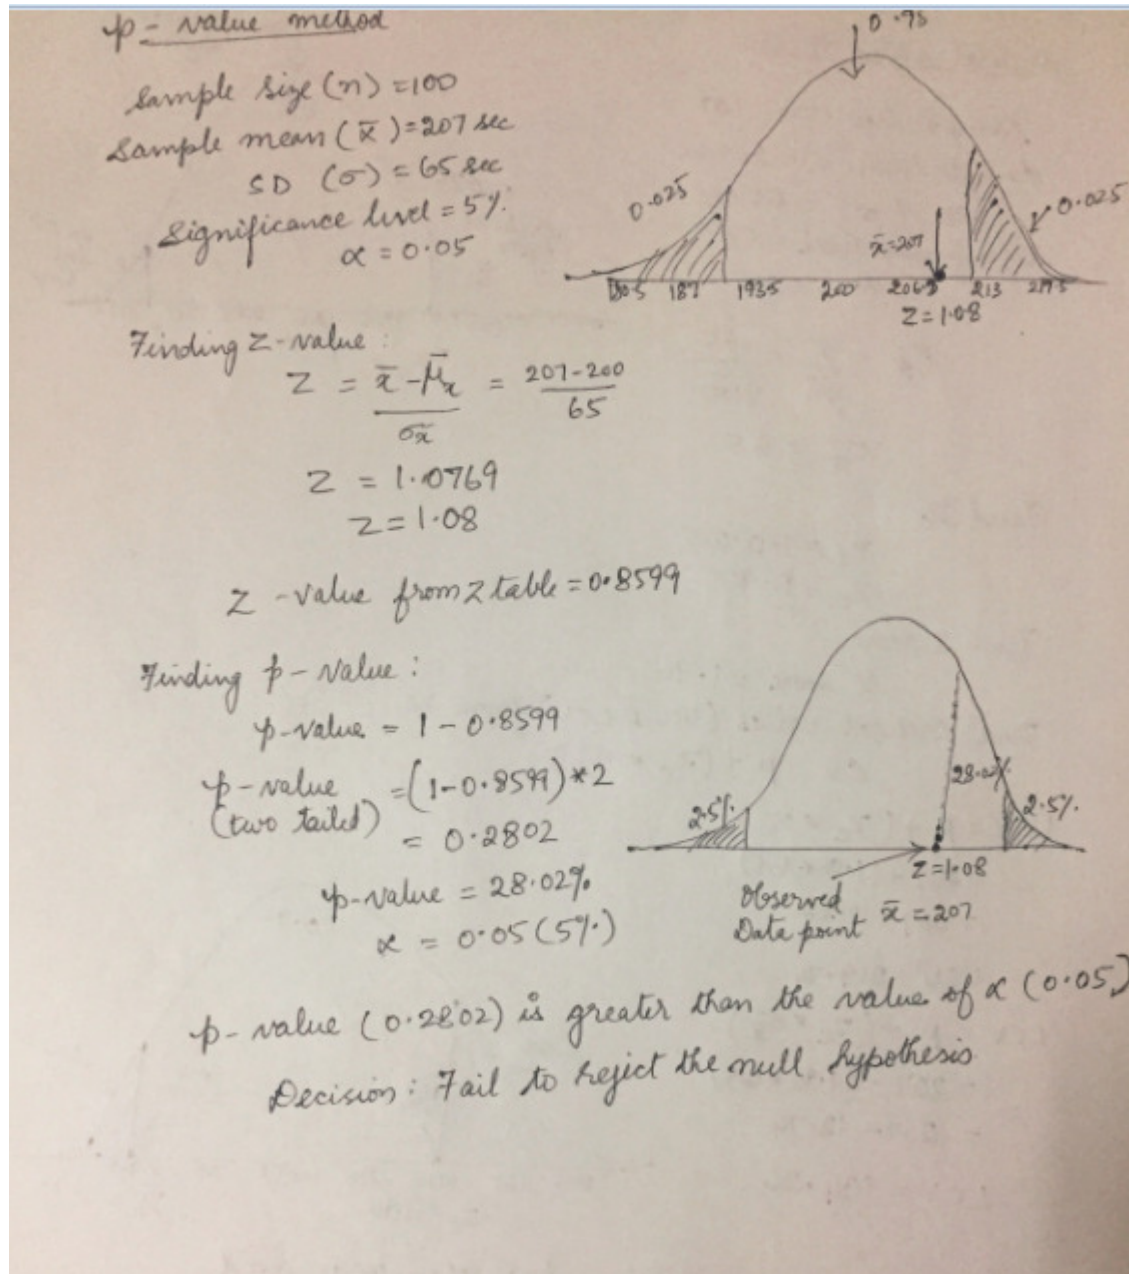 p - value method
Sample size (n) = 100
Sample mean (x̄) = 207 sec
SD (σ) = 65 sec
Significance level = 5%.
α = 0.05
0.025
0.025
x̄ = 207
187 1935 200 213
Z = 1.08
Finding Z-value :
Z = x̄ - μ̄x / σx̄ = 207-200 / 65
Z = 1.0769
Z = 1.08
Z - value from z table = 0.8599
Finding p - value :
p-value = 1 - 0.8599
p-value (two tailed) = (1-0.8599)*2
= 0.2802
p-value = 28.02%
α = 0.05 (5%.)
2.5%.
28.02%
2.5%.
Z = 1.08
Observed
Data point x̄ = 207
p- value (0.2802) is greater than the value of α (0.05)
Decision : Fail to reject the null hypothesis